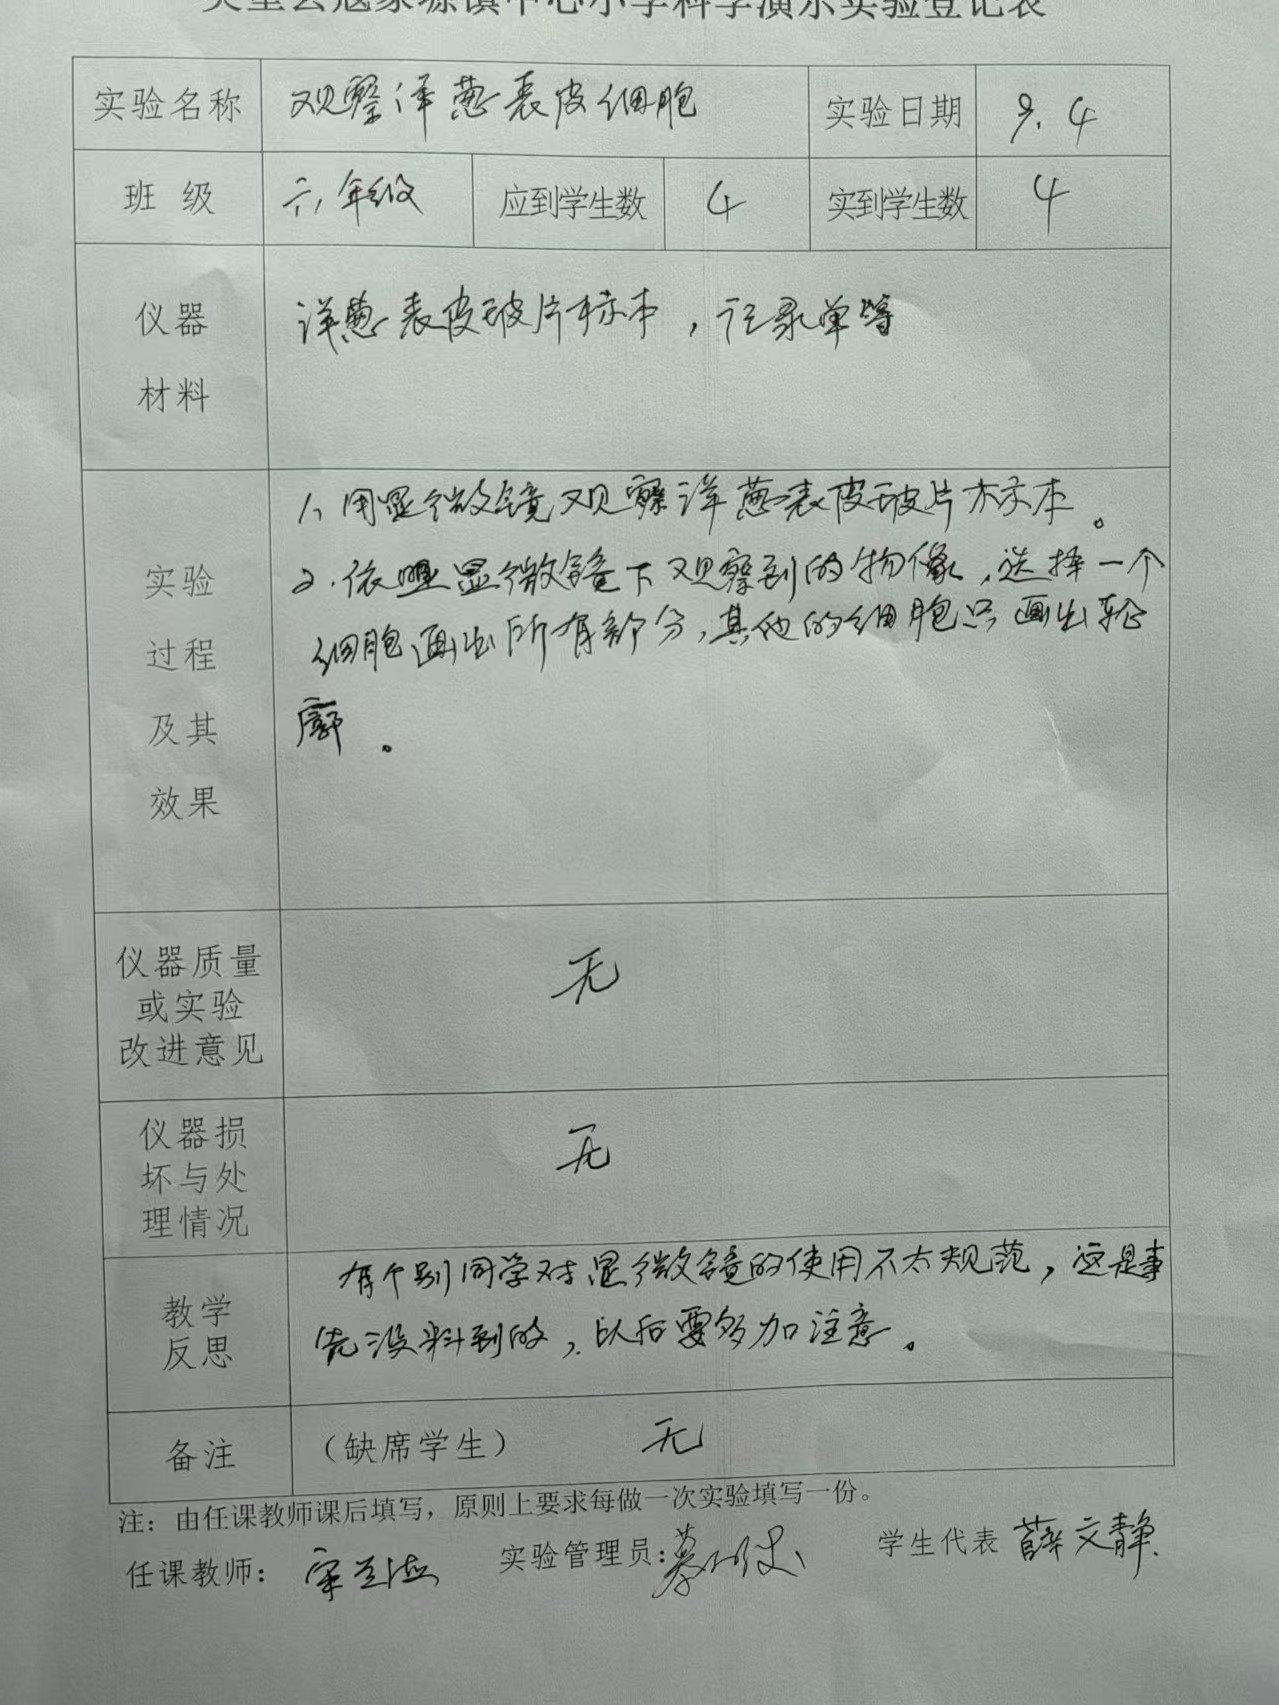 寇家塬镇中心小学科学演示实验登记表
实验名称 观察洋葱表皮细胞 实验日期 9.4
班 级 六年级 应到学生数 4 实到学生数 4
仪器 洋葱表皮玻片标本，记录单等
材料
1、用显微镜观察洋葱表皮玻片标本。
实验 2.依照显微镜下观察到的物像，选择一个
过程 细胞画出所有部分，其他的细胞只画出轮
及其 廓。
效果
仪器质量
或实验 无
改进意见
仪器损
坏与处 无
理情况
有个别同学对显微镜的使用不太规范，这是事
教学
反思 先没料到的，以后要多加注意。
备注 （缺席学生） 无
注：由任课教师课后填写，原则上要求每做一次实验填写一份。
任课教师： 实验管理员： 学生代表 薛文静